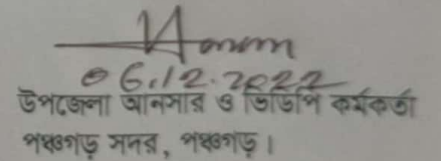 06.12.2022
উপজেলা আনসার ও ভিডিপি কর্মকর্তা
পঞ্চগড় সদর, পঞ্চগড়।